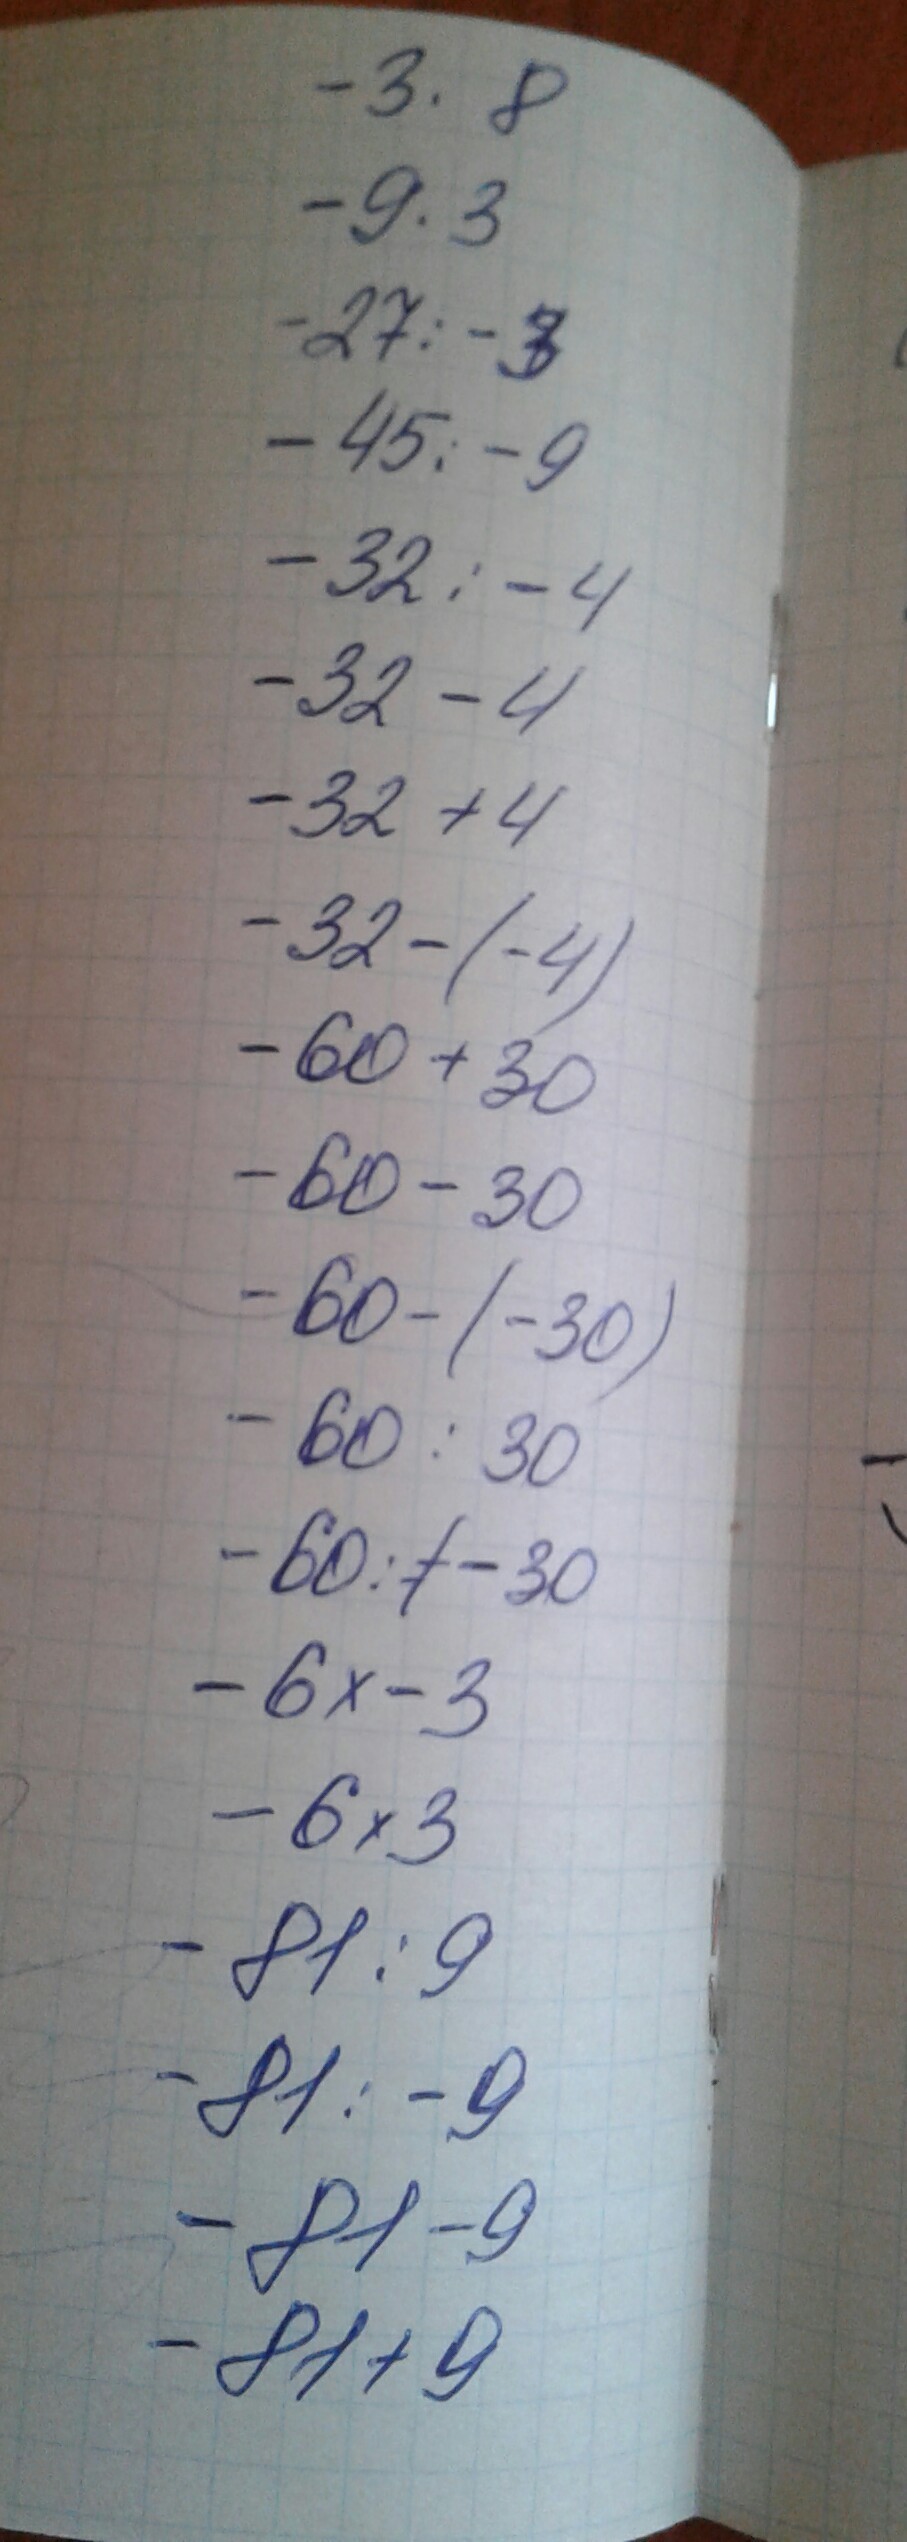 -3. 8
-9. 3
-27: -3
-45: -9
-32: -4
-32 - 4
-32 + 4
-32 - (-4)
-60 + 30
-60 - 30
-60 - (-30)
-60 : 30
-60: -30
-6x-3
-6x3
-81: 9
-81: -9
-81-9
-81+9